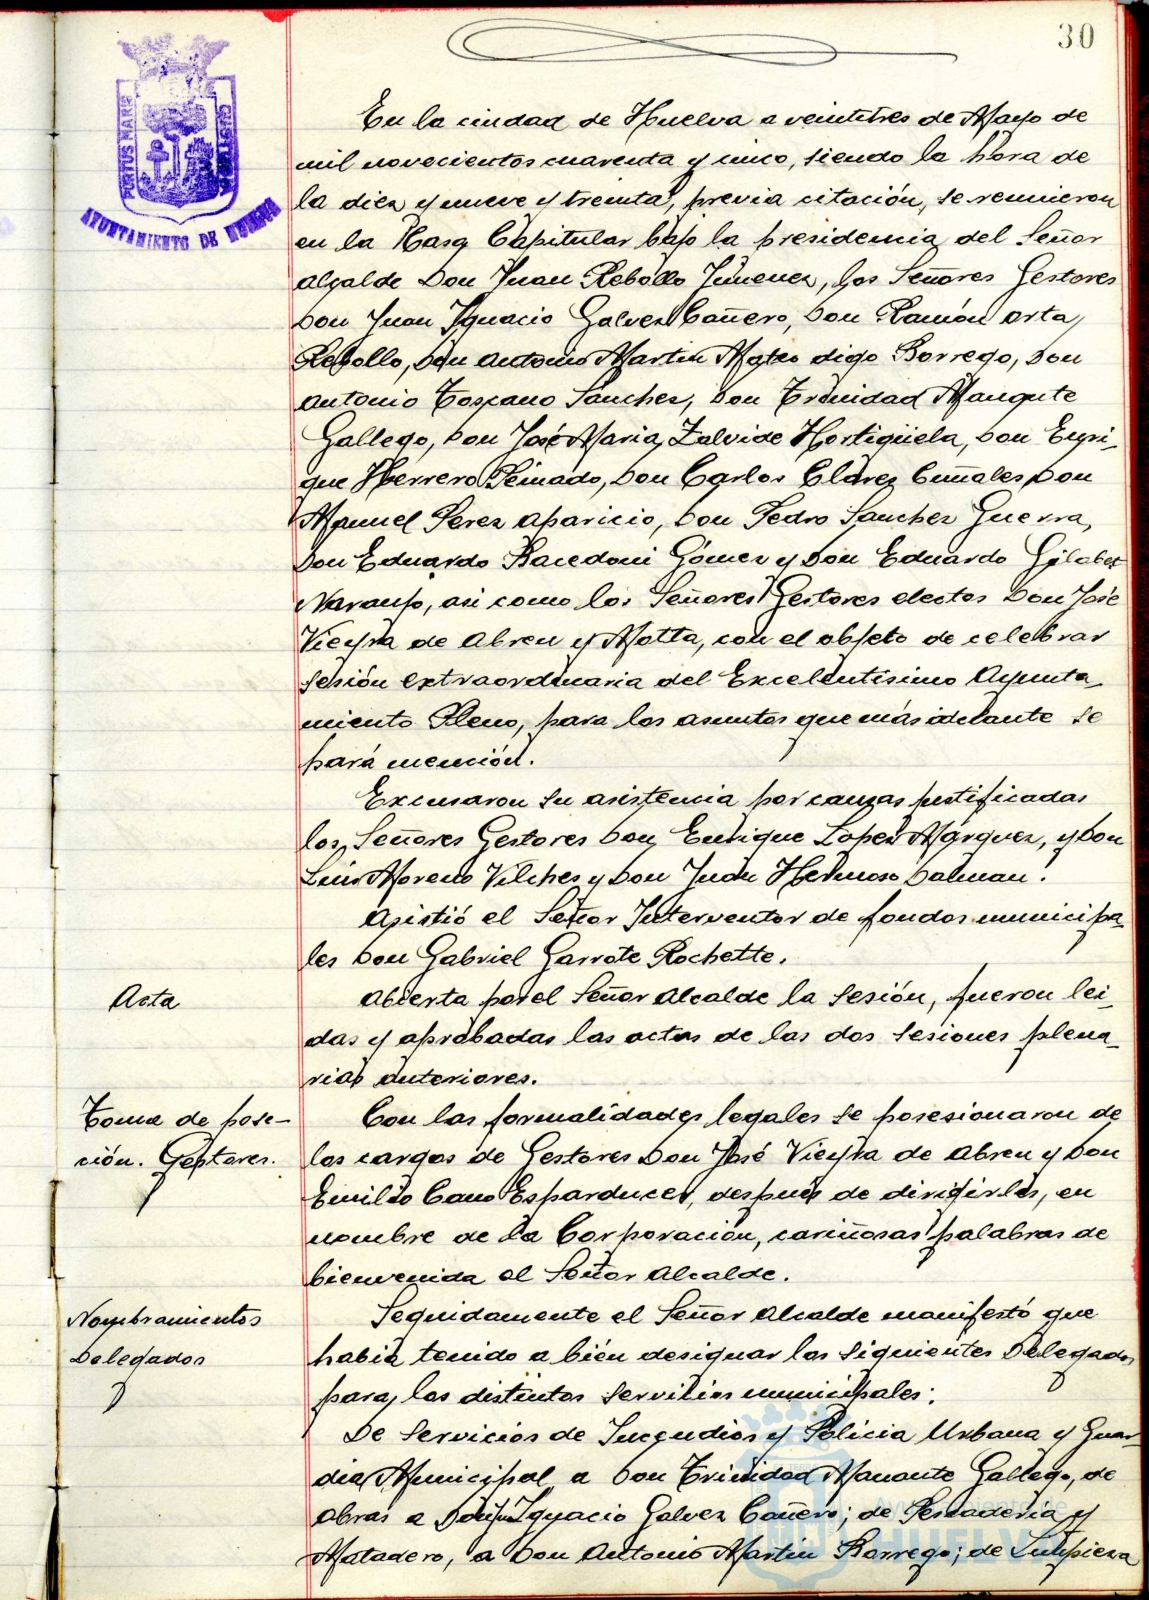 30
PORTUS MARIS
CUSTODIA
AYUNTAMIENTO DE HUELVA
En la ciudad de Huelva a veintitres de Mayo de
mil novecientos cuarenta y cinco, siendo la hora de
la diez y nueve y treinta, previa citación, se reunieron
en la Casa Capitular bajo la presidencia del Señor
Alcalde Don Juan Rebollo Jimenez, los Señores Gestores
Don Juan Ygnacio Galvez Cañero, Don Ramón Orta
Rebollo, Don Antonio Martin Mateo digo Borrego, Don
Antonio Toscano Sanchez, Don Trinidad Manzute
Gallego, Don José Maria Zalvide Hortigüela, Don Enri-
que Herrero Peinado, Don Carlos Clárez Cuñales Don
Manuel Perez Aparicio, Don Pedro Sanchez Guerra,
Don Eduardo Racedoni Gómez y Don Eduardo Gilabet
Naranjo, asi como los Señores Gestores electos Don José
Vieyra de Abreu y Motta, con el objeto de celebrar
sesión extraordinaria del Excelentisimo Ayunta-
miento Pleno, para los asuntos que más adelante se
hará mención.
Excusaron su asistencia por causas justificadas
los Señores Gestores Don Enrique Lopez Márquez, y Don
Luis Moreno Vilches y Don Juan Hermoso Dalman.
Asistió el Señor Interventor de fondos municipa-
les Don Gabriel Garrote Rochette.
Acta
Abierta por el Señor Alcalde la sesión, fueron lei-
das y aprobadas las actas de las dos sesiones plena-
rias anteriores.
Toma de pose-
ción. Gestores.
Con las formalidades legales se posesionaron de
los cargos de Gestores Don José Vieyra de Abreu y Don
Emilio Cano Esparducer, despues de dirigirles, en
nombre de la Corporación, cariñosas palabras de
bienvenida el Señor Alcalde.
Nombramientos
Delegados
Seguidamente el Señor Alcalde manifestó que
habia tenido a bién designar los siguientes Delegados
para los distintos servicios municipales:
De Servicios de Incendios y Policia Urbana y Guar-
dia Municipal a Don Trinidad Manante Gallego, de
Obras a Don Ygnacio Galvez Cañero; de Pescaderia y
Matadero, a Don Antonio Martin Borrego; de Limpieza
Ayuntamiento de
HUELVA